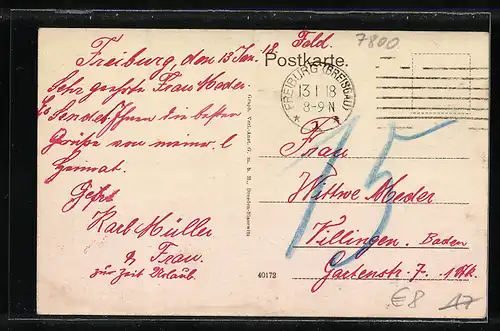 Freiburg, den 13 Jan. 18.
Sehr geehrte Frau Meder.
Es Sendet Ihnen die besten
Grüße von meiner l
Heimat.
Karl Müller
& Frau.
zur Zeit Urlaub.
Feld.
Postkarte.
7800
FREIBURG (BREISGAU)
13 1 18
8-9 N
* 1 *
15
Frau
Wittwe Meder
Villingen. Baden
Gartenstr. 7. 1 Stk.
Graph. Verl.-Anst. G. m. b. H., Dresden-Blasewitz
40172
€8